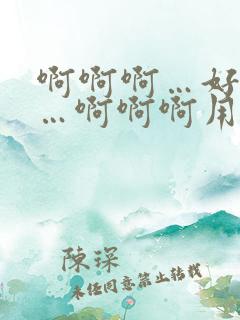 啊啊啊…好
…啊啊啊用
陳琛
未经同意禁止转载